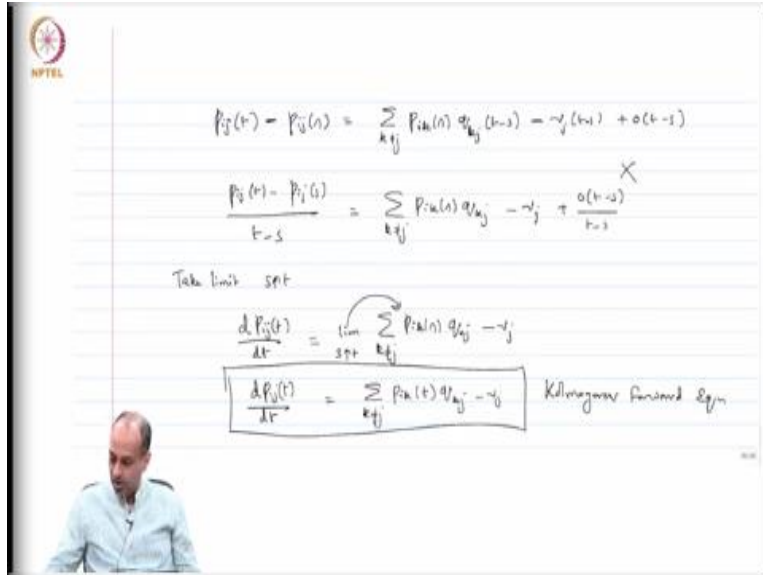 NPTEL
P_ij(t) - P_ij(s) = Σ_{k≠j} P_ik(s) q_kj (t-s) - ν_j (t-s) + o(t-s)
(P_ij(t) - P_ij(s))/(t-s) = Σ_{k≠j} P_ik(s) q_kj - ν_j + o(t-s)/(t-s) X
Take limit s↑t
dP_ij(t)/dt = lim_{s↑t} Σ_{k≠j} P_ik(s) q_kj - ν_j
dP_ij(t)/dt = Σ_{k≠j} P_ik(t) q_kj - ν_j Kolmogorov Forward Eqn